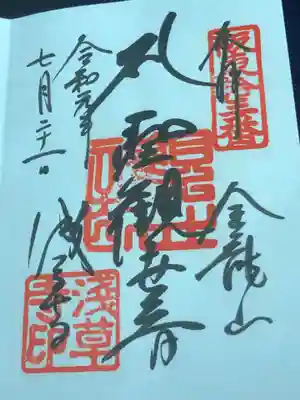 奉拝
坂東拾三番
金龍山
聖観世音
浅草寺
淺草寺印
令和元年
七月二十一日